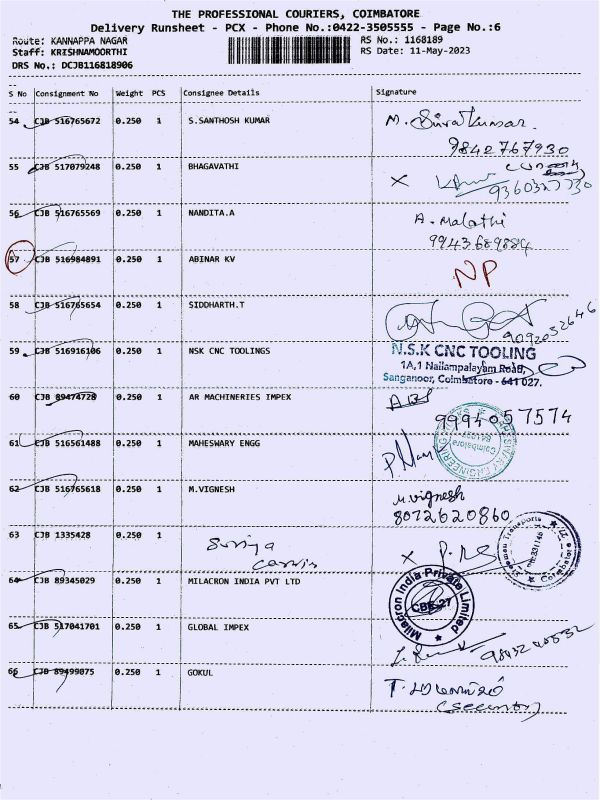 THE PROFESSIONAL COURIERS, COIMBATORE
Delivery Runsheet - PCX - Phone No.:0422-3505555 - Page No.:6
Route: KANNAPPA NAGAR RS No.: 1168189
Staff: KRISHNAMOORTHI RS Date: 11-May-2023
DRS No.: DCJB116818906
S No Consignment No Weight PCS Consignee Details Signature
54 CJB 516765672 0.250 1 S.SANTHOSH KUMAR
9842767930
55 CJB 517079248 0.250 1 BHAGAVATHI X
9360327730
56 CJB 516765569 0.250 1 NANDITA.A A. Malathi
9943689884
57 CJB 516984891 0.250 1 ABINAR KV NP
58 CJB 516765654 0.250 1 SIDDHARTH.T
9092032646
59 CJB 516916106 0.250 1 NSK CNC TOOLINGS N.S.K CNC TOOLING
1A,1 Nallampalayam Road,
Sanganoor, Coimbatore - 641 027.
60 CJB 89474728 0.250 1 AR MACHINERIES IMPEX
9994057574
61 CJB 516561488 0.250 1 MAHESWARY ENGG
62 CJB 516765618 0.250 1 M.VIGNESH M.Vignesh
8072620860
63 CJB 1335428 0.250 1 Surya X
64 CJB 89345029 0.250 1 MILACRON INDIA PVT LTD Milacron India Private Limited
CBE-27
65 CJB 517041701 0.250 1 GLOBAL IMPEX
66 CJB 89499075 0.250 1 GOKUL
(Security)